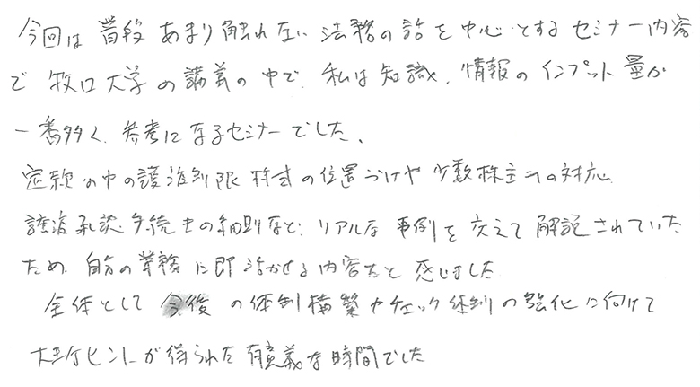 今回は普段あまり触れない法務の話を中心とするセミナー内容
で牧口大学の講義の中で、私は知識、情報のインプット量が
一番多く、参考になるセミナーでした。
定款の中の譲渡制限株式の位置づけや少数株主への対応、
譲渡承認手続き上の細則など、リアルな事例を交えて解説されていた
ため、自分の業務に即活かせる内容だと感じました
全体として今後の体制構築やチェック体制の強化に向けて
大きなヒントが得られた有意義な時間でした